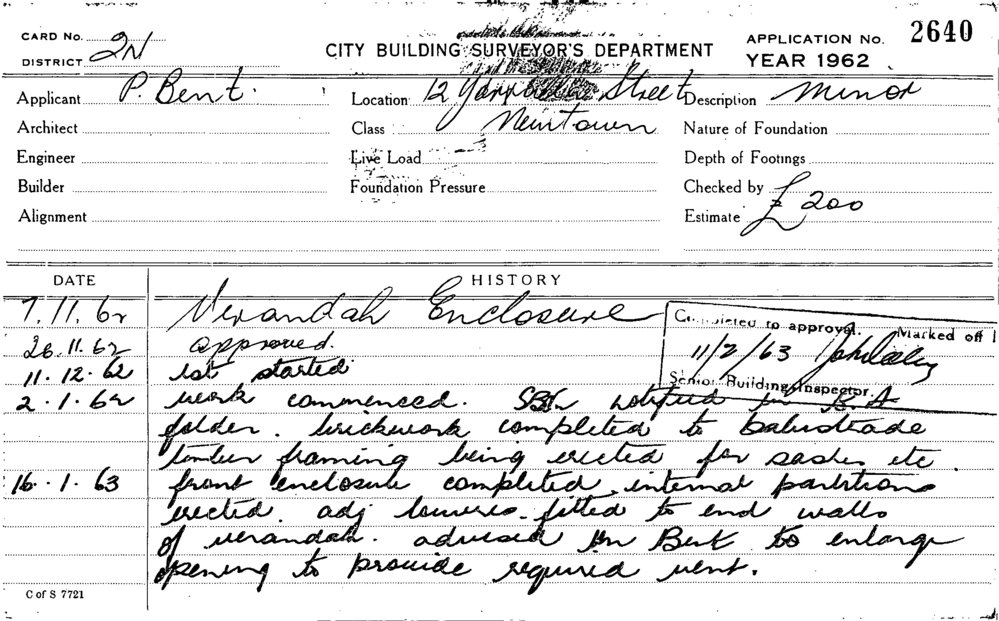 CARD No.
DISTRICT 2N
CITY BUILDING SURVEYOR'S DEPARTMENT
APPLICATION No. 2640
YEAR 1962
Applicant P. Bent.
Location 12 Street
Description Minor
Architect
Class Newtown
Nature of Foundation
Engineer
Live Load
Depth of Footings
Builder
Foundation Pressure
Checked by
Alignment
Estimate £ 200
DATE HISTORY
7.11.62 Verandah Enclosure
Completed to approval. Marked off
26.11.62 approved.
11/2/63
11.12.62 started
Senior Building Inspector
2.1.62 work commenced. notified in B.A
folder. brickwork completed to balustrade
timber framing being erected for sashes etc.
16.1.63 front enclosure completed, internal partitions
erected. adj louvres fitted to end walls
of verandah. advised Mr Bent to enlarge
opening to provide required vent.
C of S 7721